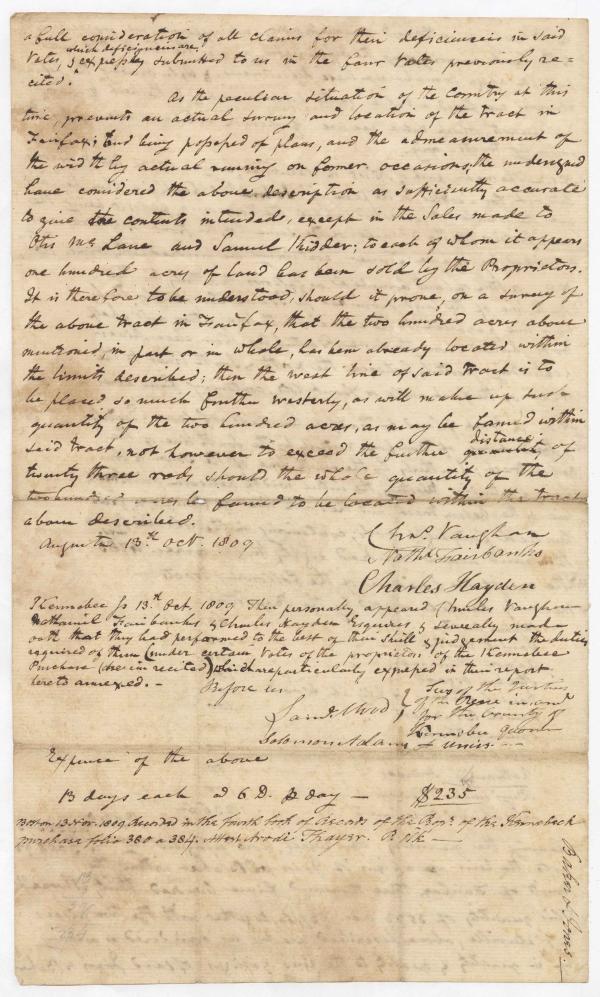 a full consideration of all claims for their deficiencies in said
Votes, which deficiencies are, expressly submitted to us in the four Votes previously re=
cited."
As the peculiar situation of the Country at this
time, prevents an actual survey and location of the tract in
Fairfax; but being possessed of plans, and the admeasurement of
the width by actual running on former occasions, the undersigned
have considered the above description as sufficiently accurate
to give the contents intended, except in the Sales made to
Otis Mc Lane and Samuel Kidder; to each of whom it appears
one hundred acres of land has been sold by the Proprietors.
It is therefore to be understood, should it prove, on a survey of
the above tract in Fairfax, that the two hundred acres above
mentioned, in part or in whole, has been already located within
the limits described; then the west line of said tract is to
be placed so much further westerly, as will make up such
quantity of the two hundred acres, as may be found within
said tract, not however to exceed the further distance of
twenty three rods should the whole quantity of the
two hundred acres be found to be located within the tract
above described.
Augusta 13th Oct. 1809
Chas. Vaughan
Nathl Fairbanks
Charles Hayden
Kennebec Ss 13th Oct, 1809 Then personally appeared Charles Vaughan
Nathaniel Fairbanks & Charles Hayden Esquires & severally made
oath that they had performed to the best of their skill & judgement the duties
required of them (under certain Votes of the proprietors of the Kennebec
Purchase (herein recited) which are particularly expressed in their report
hereto annexed. -
Before us
Solomon Adams
of the Peace in and
for the County of
Kennebec quorum
Expence of the above
13 days each at 6 D. p day - $235
Boston 13 Nov. 1809 Recorded in the fourth book of Records of the Props. of the Kennebeck
purchase folio 380 a 384. Attest Arodi Thayer. P. Clk -